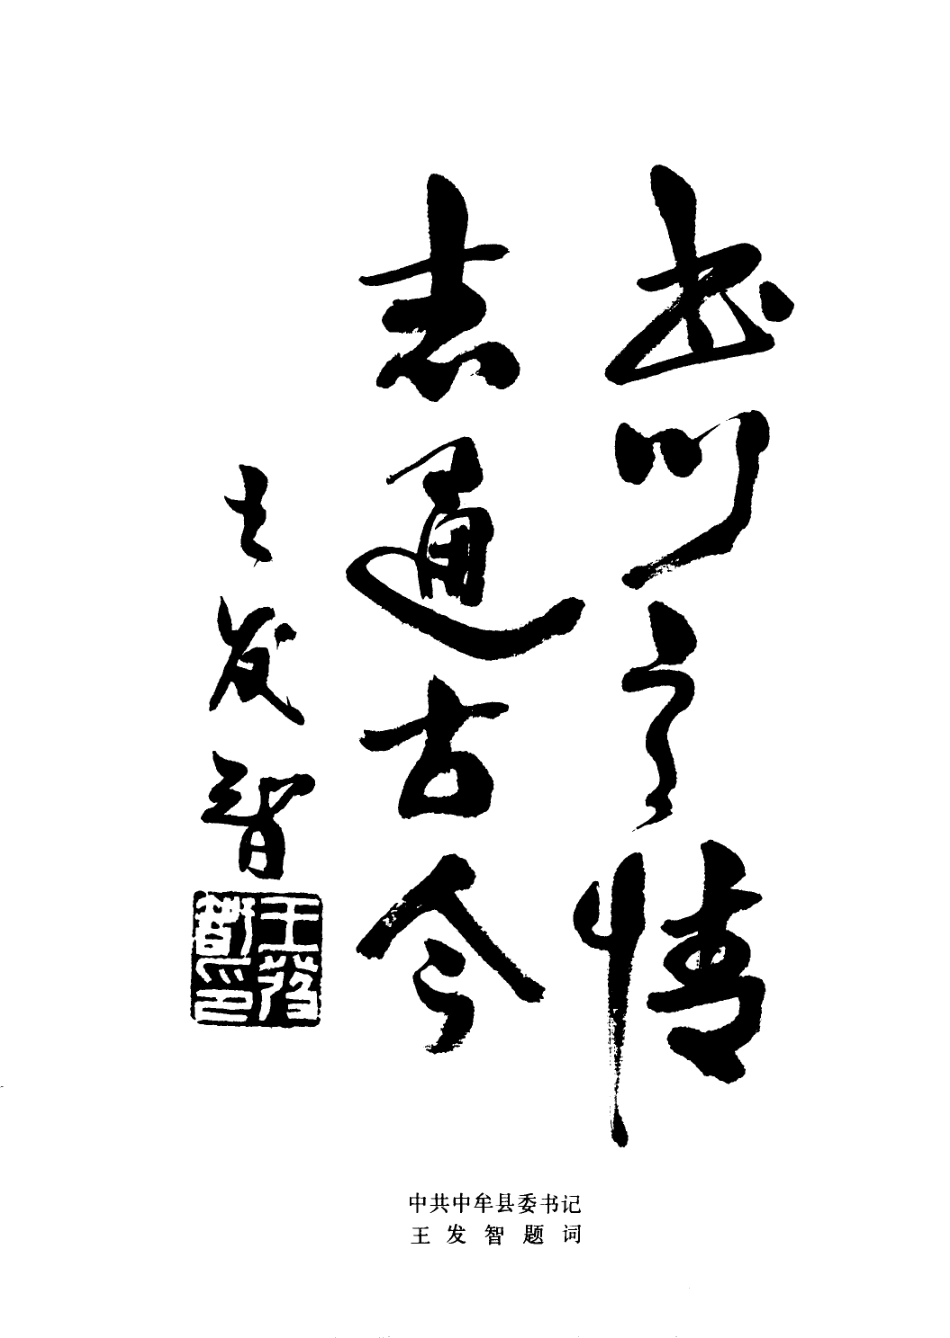 书情
志通古今
王发智
王發智印
中共中牟县委书记
王发智题词